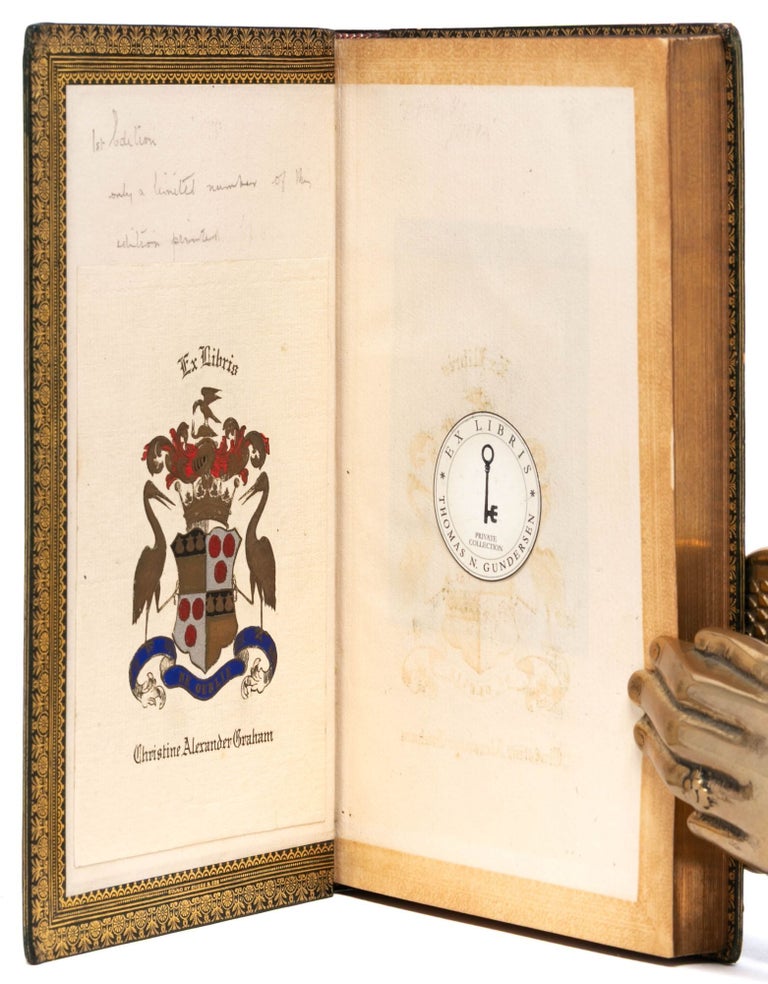 1st Edition
only a limited number of this
edition printed
Ex Libris
Christine Alexander Graham
BOUND BY
EX LIBRIS
THOMAS N. GUNDERSEN
PRIVATE
COLLECTION